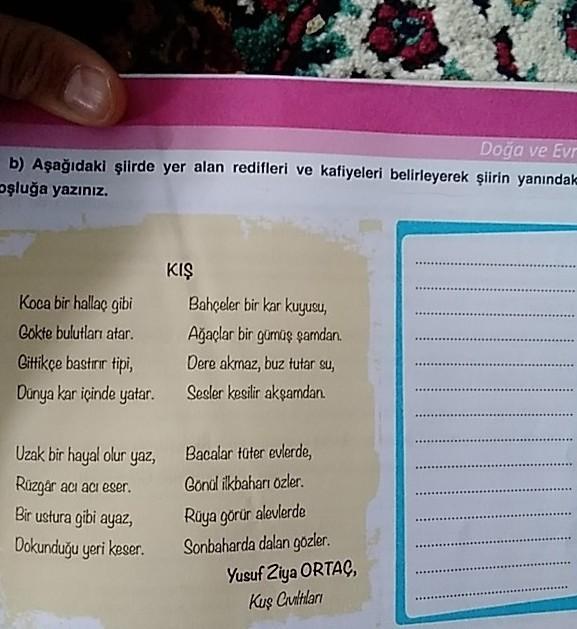 Doğa ve Evr
b) Aşağıdaki şiirde yer alan redifleri ve kafiyeleri belirleyerek şiirin yanındak
oşluğa yazınız.
KIŞ
Koca bir hallaç gibi
Gökte bulutları atar.
Gittikçe bastırır tipi,
Dünya kar içinde yatar.
Uzak bir hayal olur yaz,
Rüzgâr acı acı eser.
Bir ustura gibi ayaz,
Dokunduğu yeri keser.
Bahçeler bir kar kuyusu,
Ağaçlar bir gümüş şamdan.
Dere akmaz, buz tutar su,
Sesler kesilir akşamdan.
Bacalar tüter evlerde,
Gönül ilkbaharı özler.
Rüya görür alevlerde
Sonbaharda dalan gözler.
Yusuf Ziya ORTAÇ,
Kuş Cıvıltıları